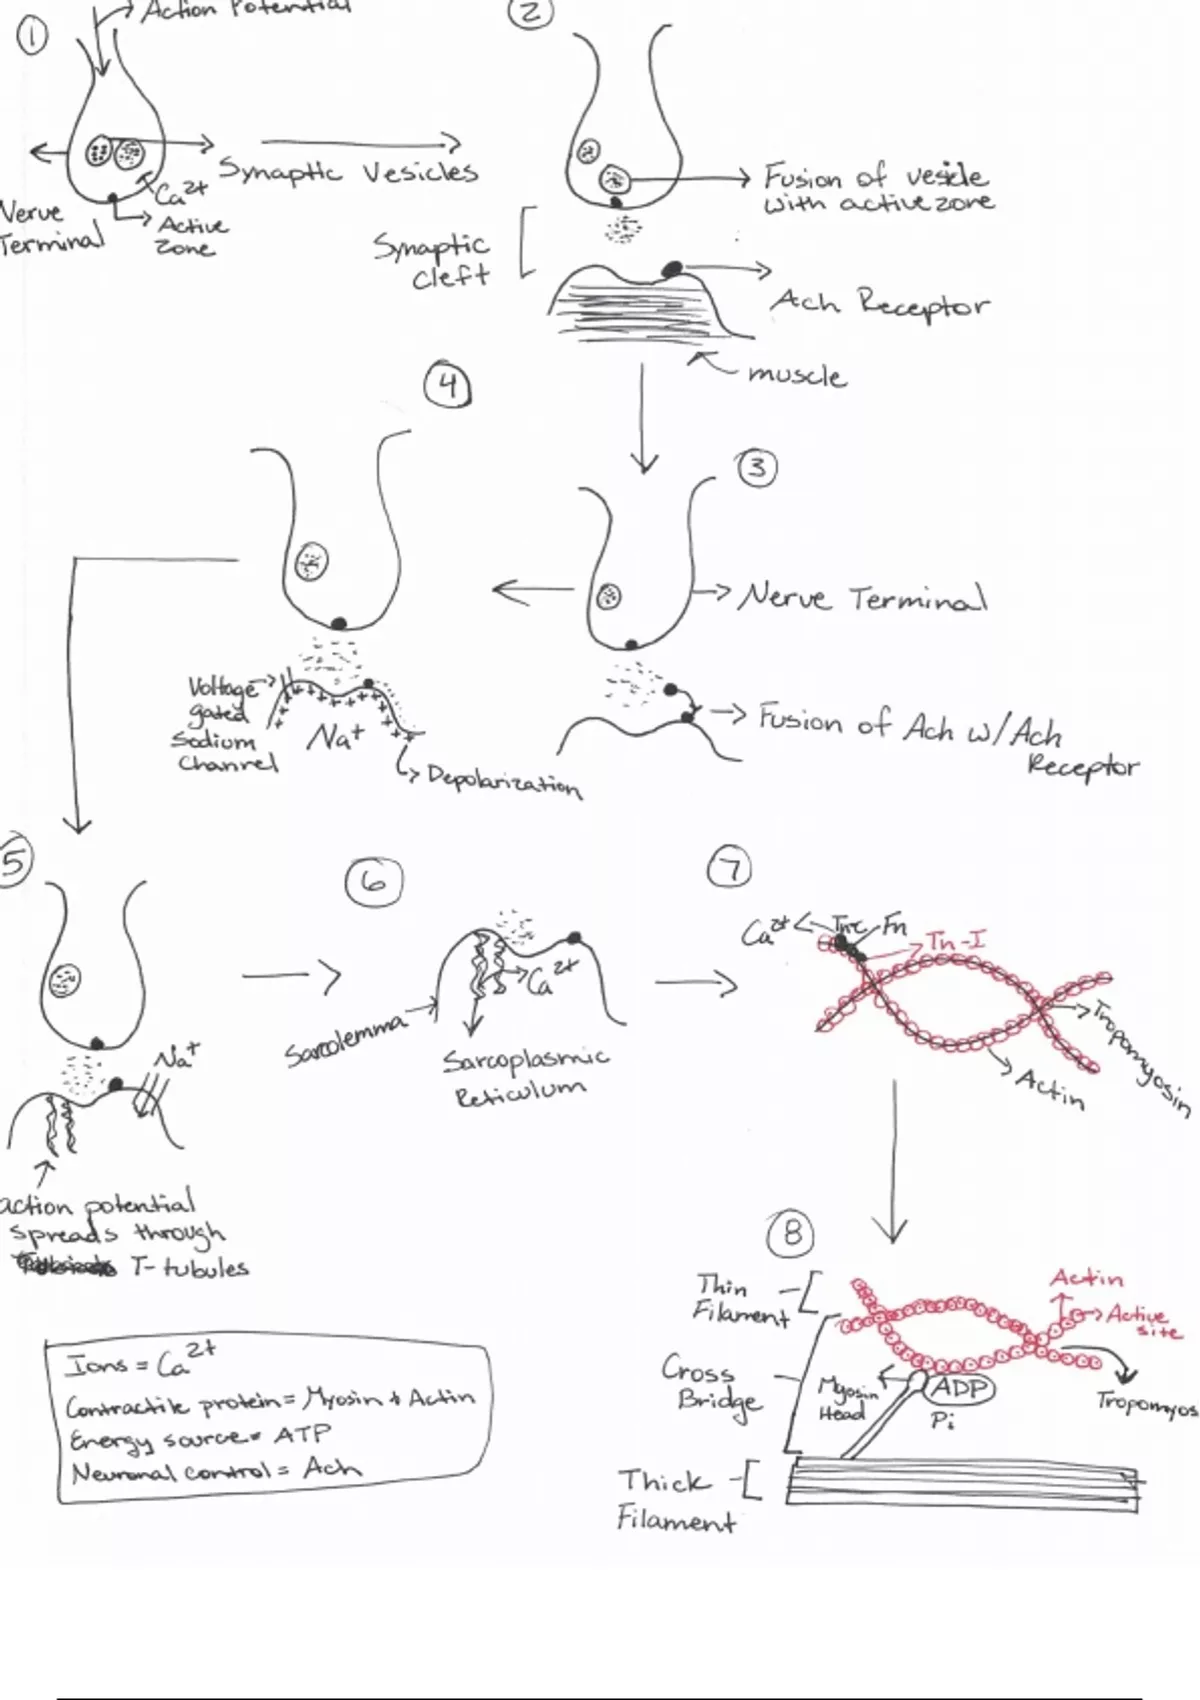 ①
Action Potential
Synaptic Vesicles
Ca2+
Active
Zone
Nerve
Terminal
②
Fusion of vesicle
with active zone
Synaptic
cleft
Ach Receptor
muscle
③
Nerve Terminal
Fusion of Ach w/Ach
Receptor
④
Voltage
gated
Sodium
Channel
Na+
Depolarization
⑤
Na+
action potential
spreads through
T-tubules
⑥
Ca2+
Sarcolemma
Sarcoplasmic
Reticulum
⑦
Ca2+
Tn-I
Tropomyosin
Actin
⑧
Thin
Filament
Actin
Active
site
Cross
Bridge
Myosin
Head
ADP
Pi
Tropomyos
Thick
Filament
Ions = Ca2+
Contractile protein = Myosin + Actin
Energy source = ATP
Neuronal control = Ach